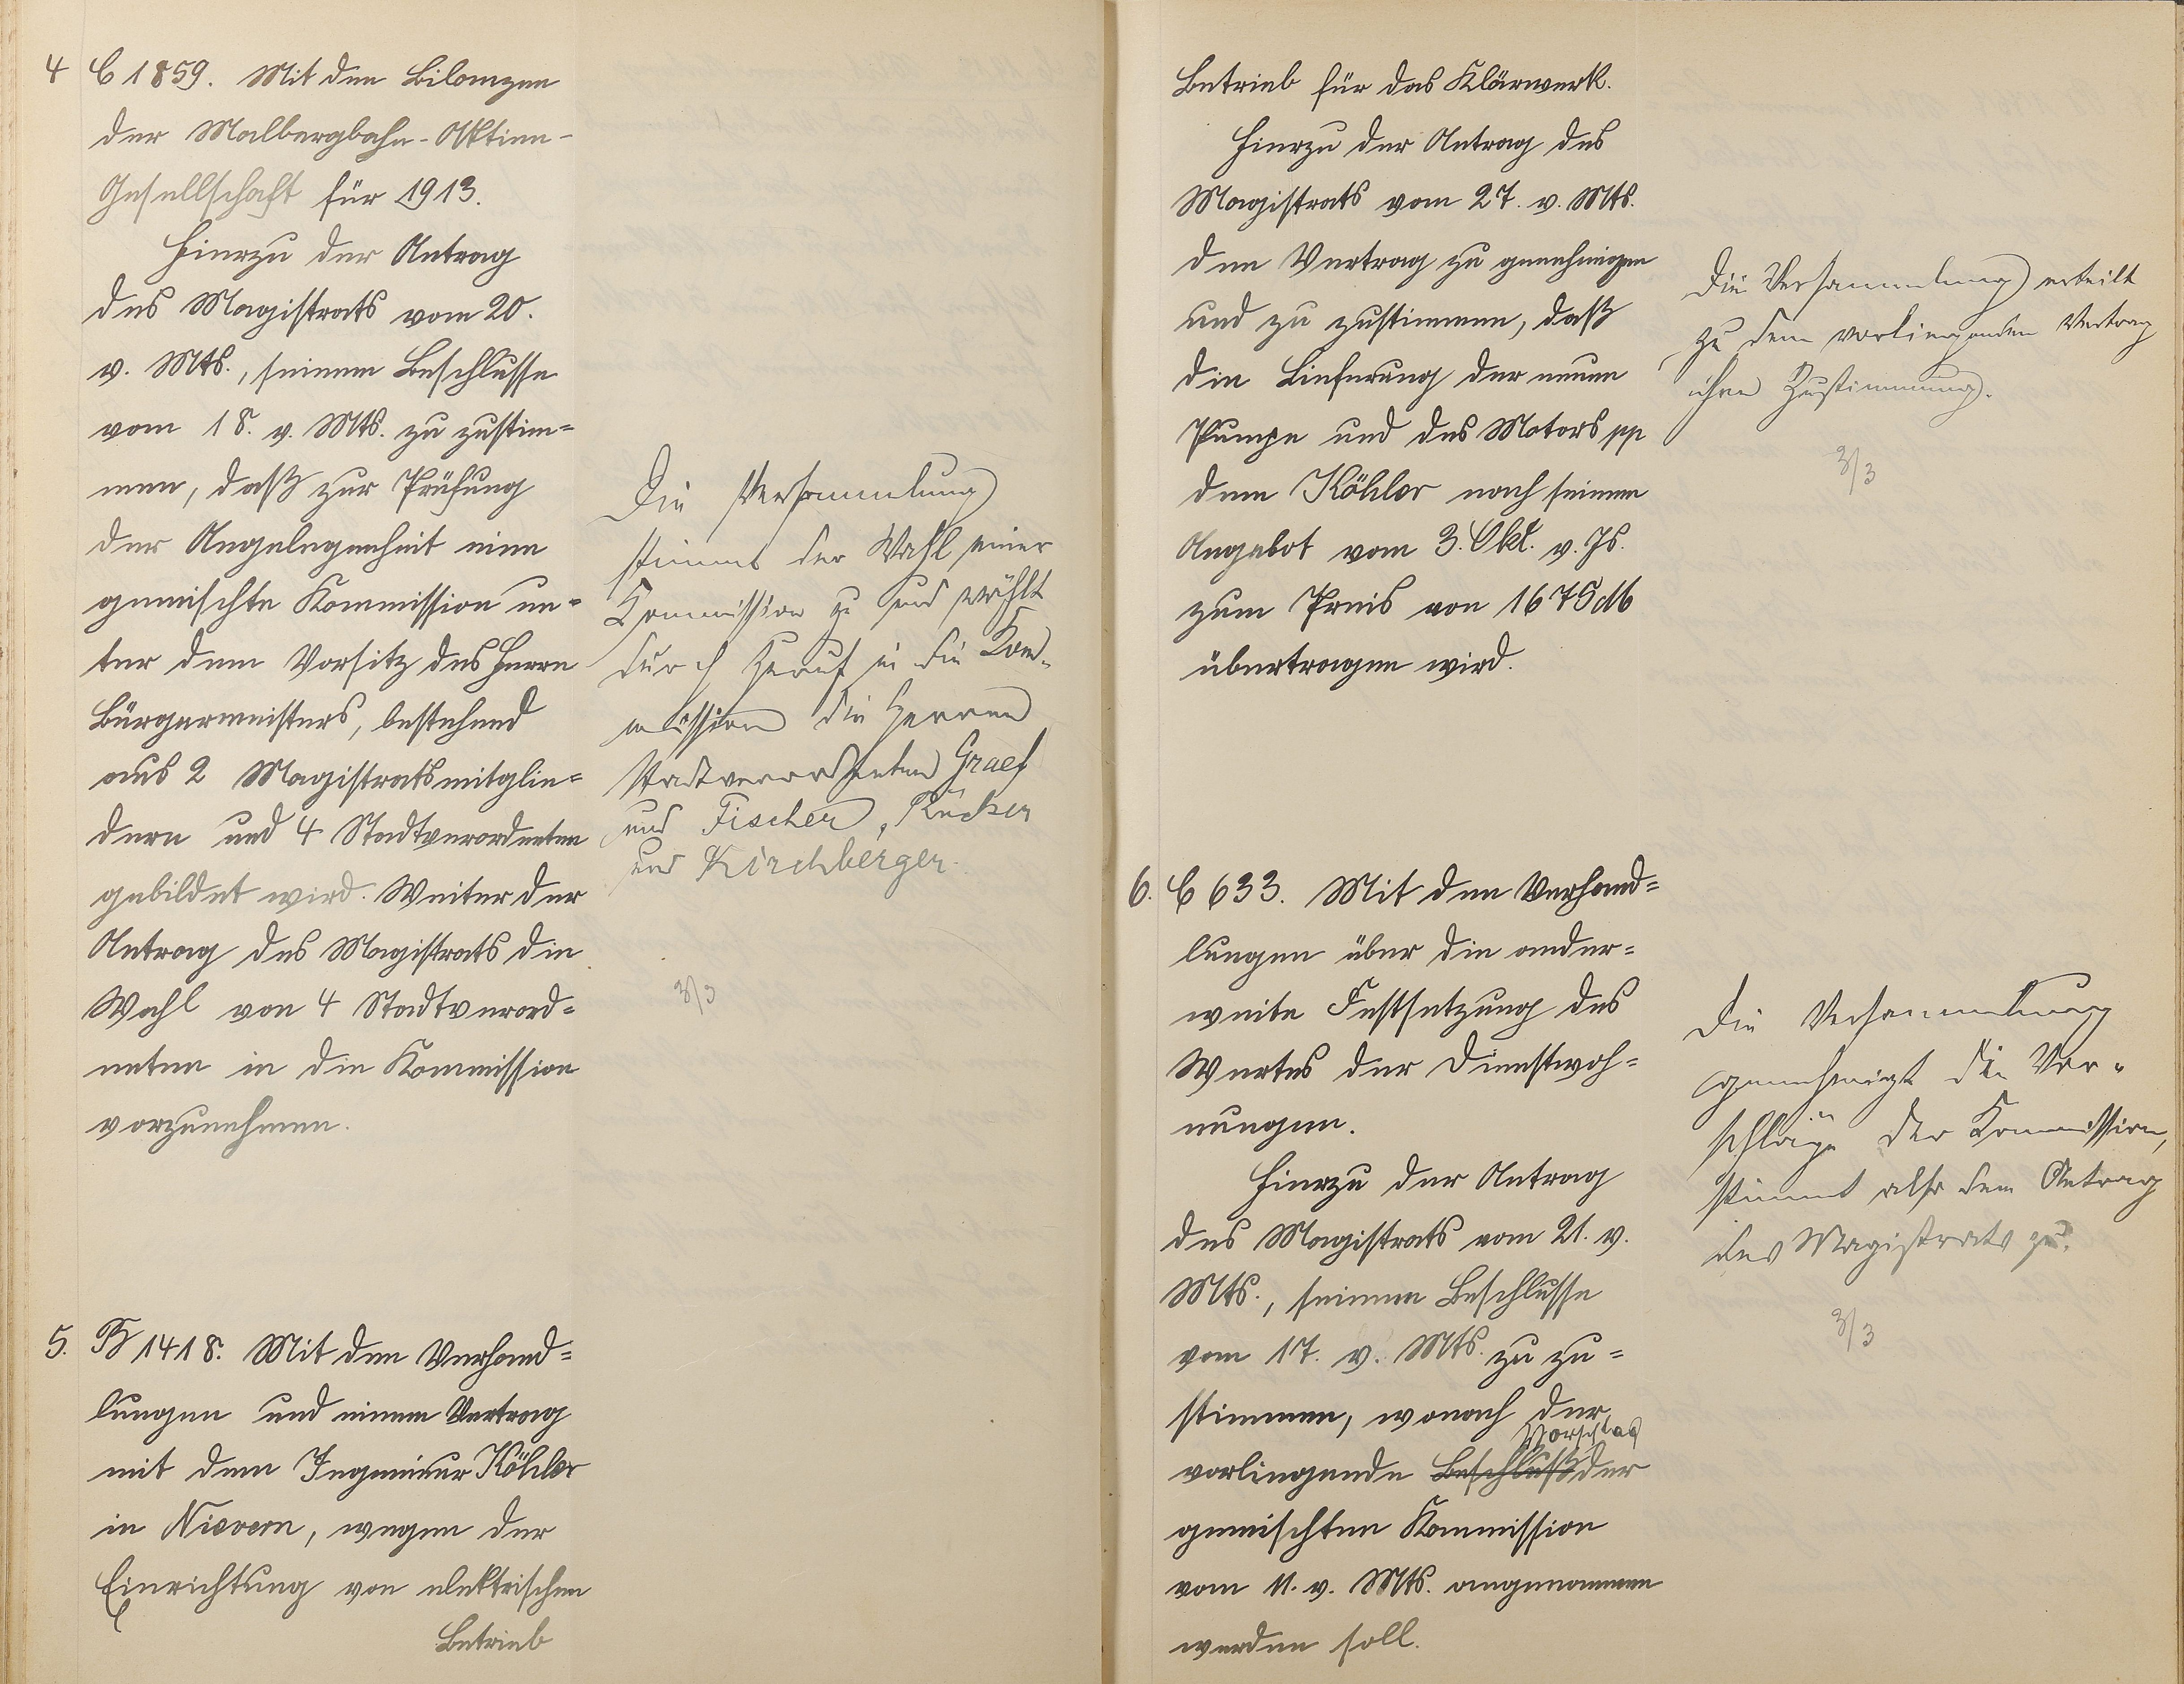 4 C 1859. Mit den Bilanzen
der Malbergbahn-Aktien-
Gesellschaft für 1913.
Hierzu der Antrag
des Magistrats vom 20.
v. Mts., seinem Beschlusse
vom 18. v. Mts. zu zustim=
men, daß zur Prüfung
der Angelegenheit eine
gemischte Kommission un=
ter dem Vorsitz des Herrn
Bürgermeisters, bestehend
aus 2 Magistratsmitglie=
dern und 4 Stadtverordneten
gebildet wird. Weiter der
Antrag des Magistrats die
Wahl von 4 Stadtverord=
neten in die Kommission
vorzunehmen.
Die Versammlung
stimmt der Wahl einer
Kommission zu und wählt
durch Zuruf in die Kom=
mission die Herren
Stadtverordneten Graef
und Fischer, Rücker
und Kirchberger.
3/3
5. B 1418. Mit den Verhand=
lungen und einem Vertrag
mit dem Ingenieur Köhler
in Nievern, wegen der
Einrichtung von elektrischen
Betrieb
Betrieb für das Klärwerk.
Hierzu der Antrag des
Magistrats vom 27. v. Mts.
den Vertrag zu genehmigen
und zu zustimmen, daß
die Lieferung der neuen
Pumpe und des Motors pp
dem Köhler nach seinem
Angebot vom 3. Okt. v. Js.
zum Preis von 1675 M
übertragen wird.
Die Versammlung erteilt
zu dem vorliegenden Vertrag
ihre Zustimmung.
3/3
6. C 633. Mit den Verhand=
lungen über die ander=
weite Festsetzung des
Wertes der Dienstwoh=
nungen.
Hierzu der Antrag
des Magistrats vom 21. v.
Mts., seinem Beschlusse
vom 17. v. Mts. zu zu=
stimmen, wonach der
Vorschlag
vorliegende Beschluß der
gemischten Kommission
vom 11. v. Mts. angenommen
werden soll.
Die Versammlung
genehmigt die Vor=
schläge der Kommission,
stimmt also dem Antrag
des Magistrats zu.
3/3